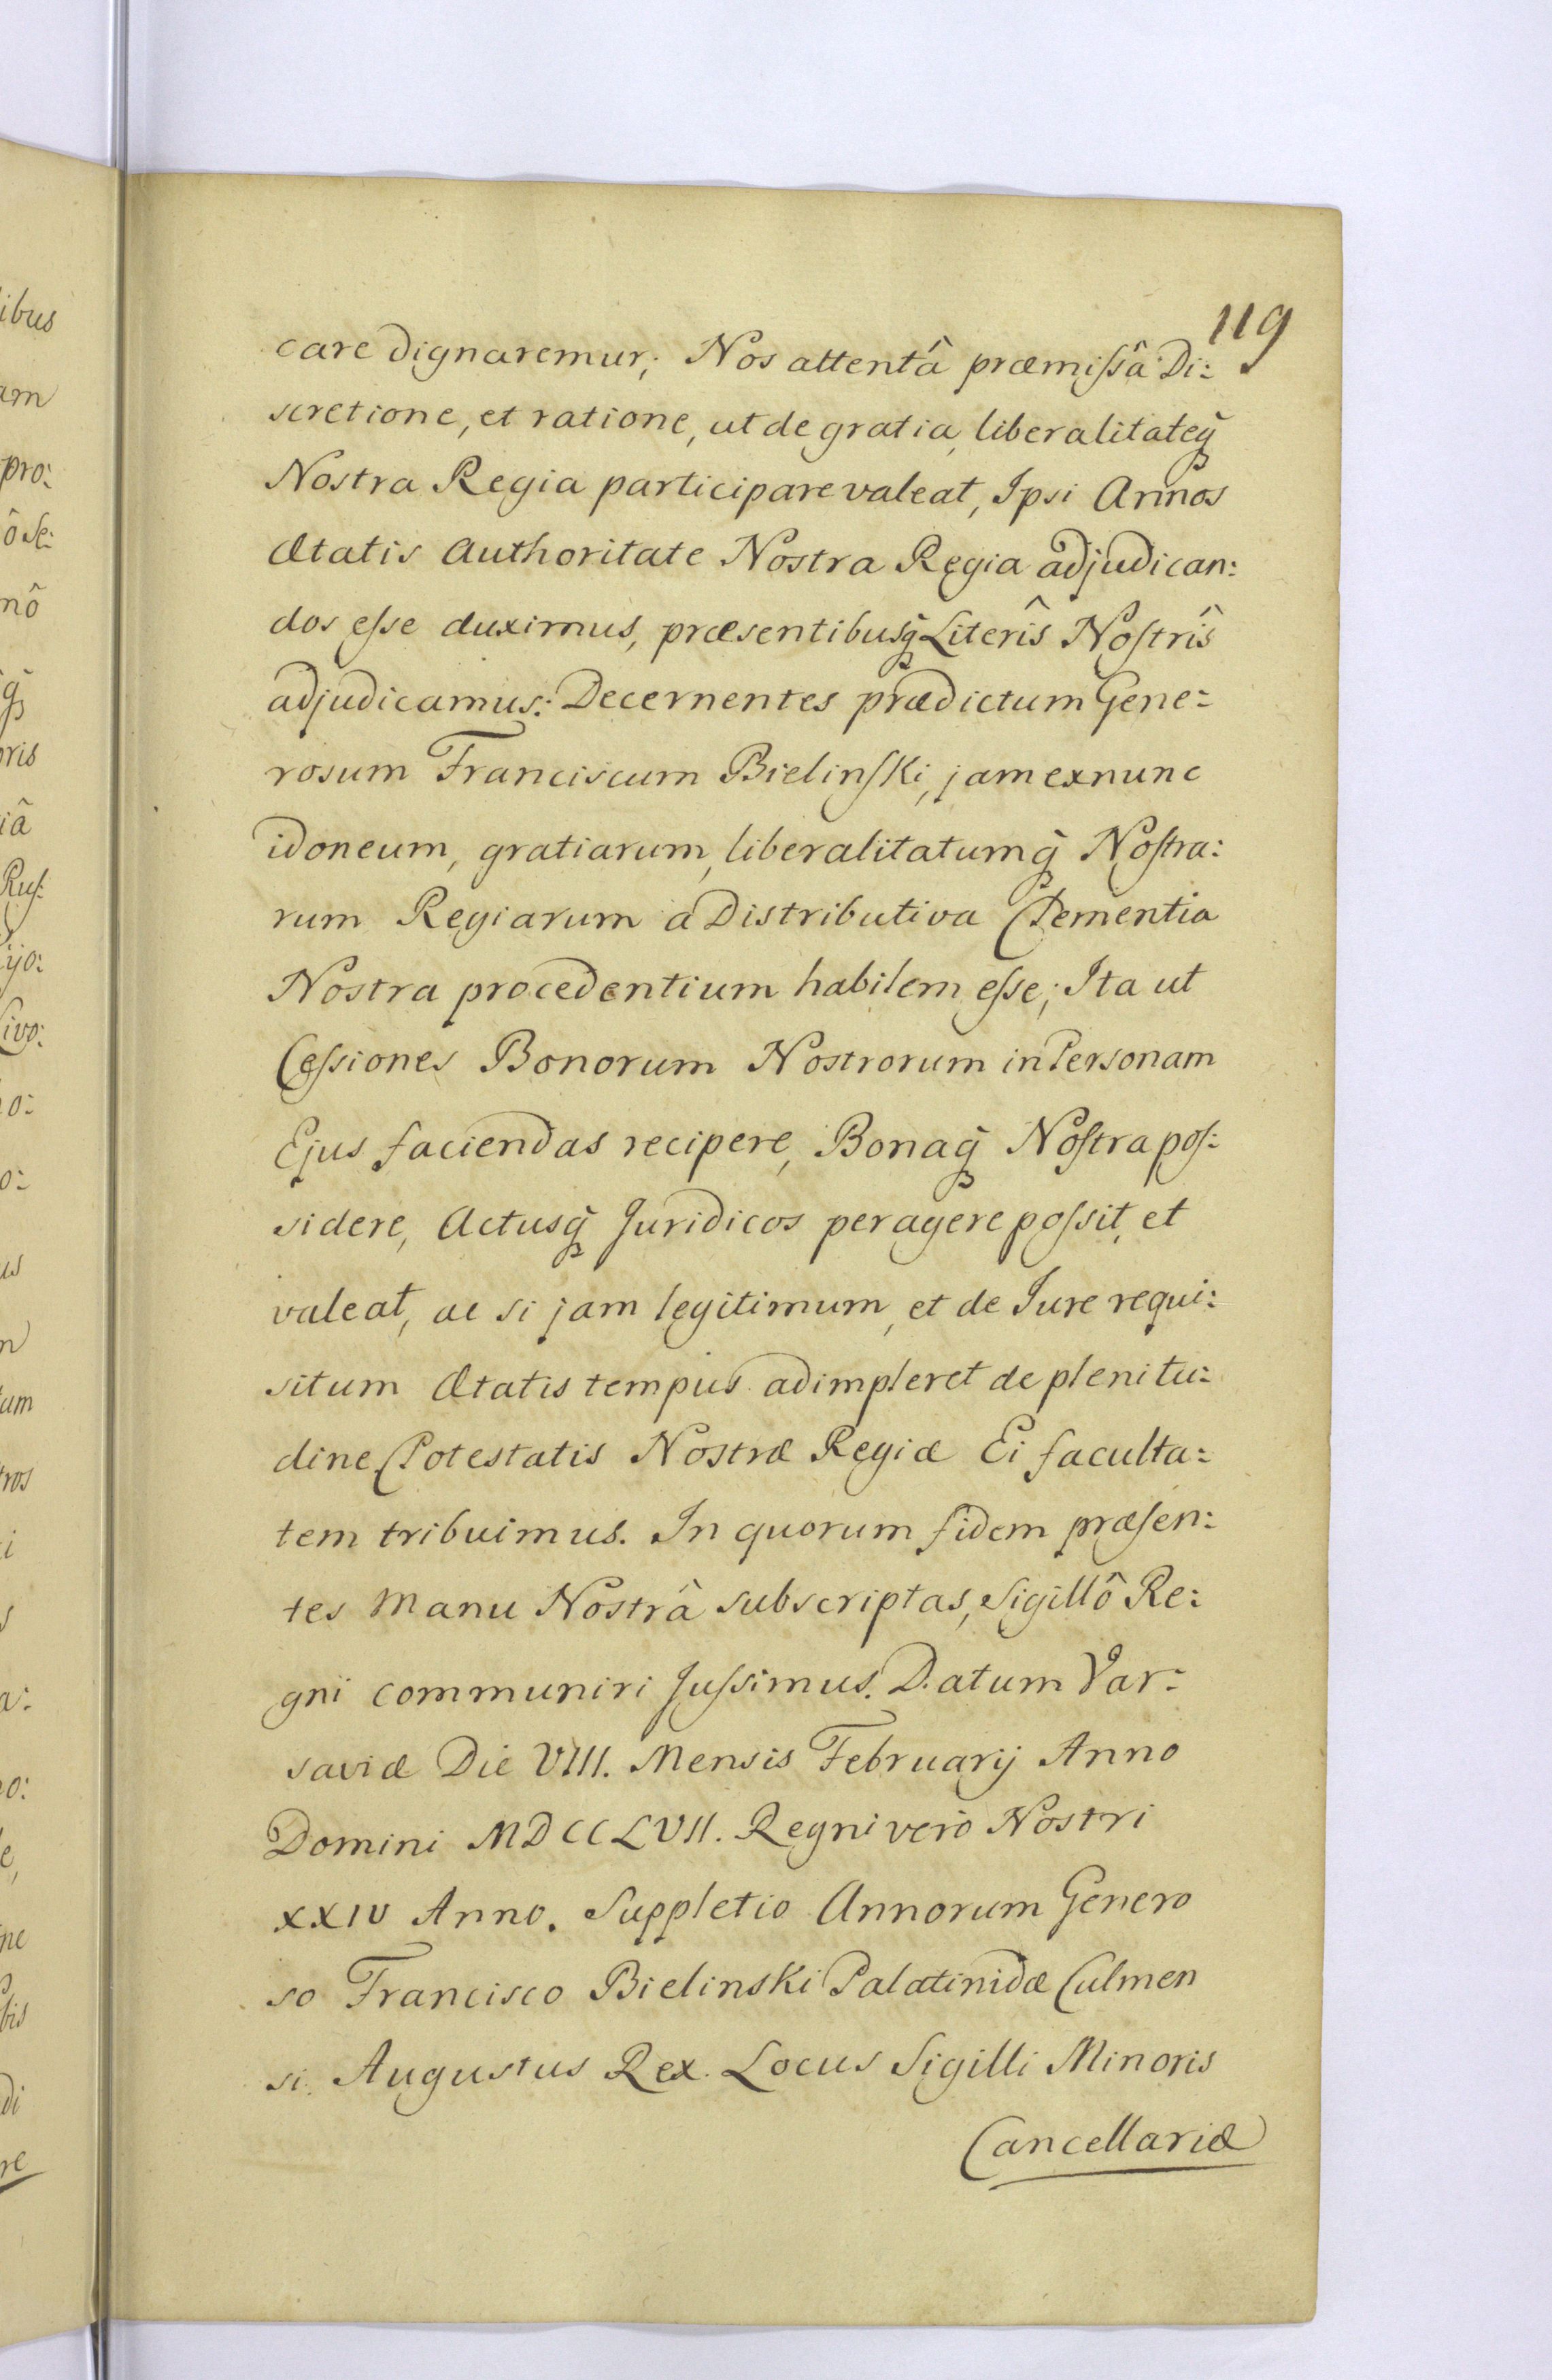 119
care dignaremur; Nos attentâ præmiſsâ Di:
scretione, et ratione, ut de gratia, liberalitateq̃
Nostra Regia participare valeat, Ipsi Annos
Ætatis Authoritate Nostra Regia adjudican:
dos eſse duximus, præsentibusq̃ Literîs Noſtrîs
adjudicamus: Decernentes prædictum Gene:
rosum Franciscum Bielinſki, jam exnunc
idoneum, gratiarum, liberalitatumq̃ Noſtra:
rum Regiarum a Distributiva Clementia
Nostra procedentium habilem eſse; Ita ut
Ceſsiones Bonorum Nostrorum in Personam
Ejus faciendas recipere, Bonaq̃ Noſtra poſ:
sidere, Actusq̃ Juridicos peragere poſsit, et
valeat, ac si jam legitimum, et de Jure requi:
situm Ætatis tempus adimpleret de plenitu:
dine Potestatis Nostræ Regiæ Ei faculta:
tem tribuimus. In quorum fidem præſen:
tes Manu Nostrâ subscriptas, Sigillô Re:
gni communiri Juſsimus. Datum Var:
saviæ Die VIII. Mensis Februarij Anno
Domini MDCCLVII. Regni verò Nostri
XXIV Anno. Suppletio Annorum Genero
so Francisco Bielinski Palatinidæ Culmen
si. Augustus Rex. Locus Sigilli Minoris
Cancellariæ